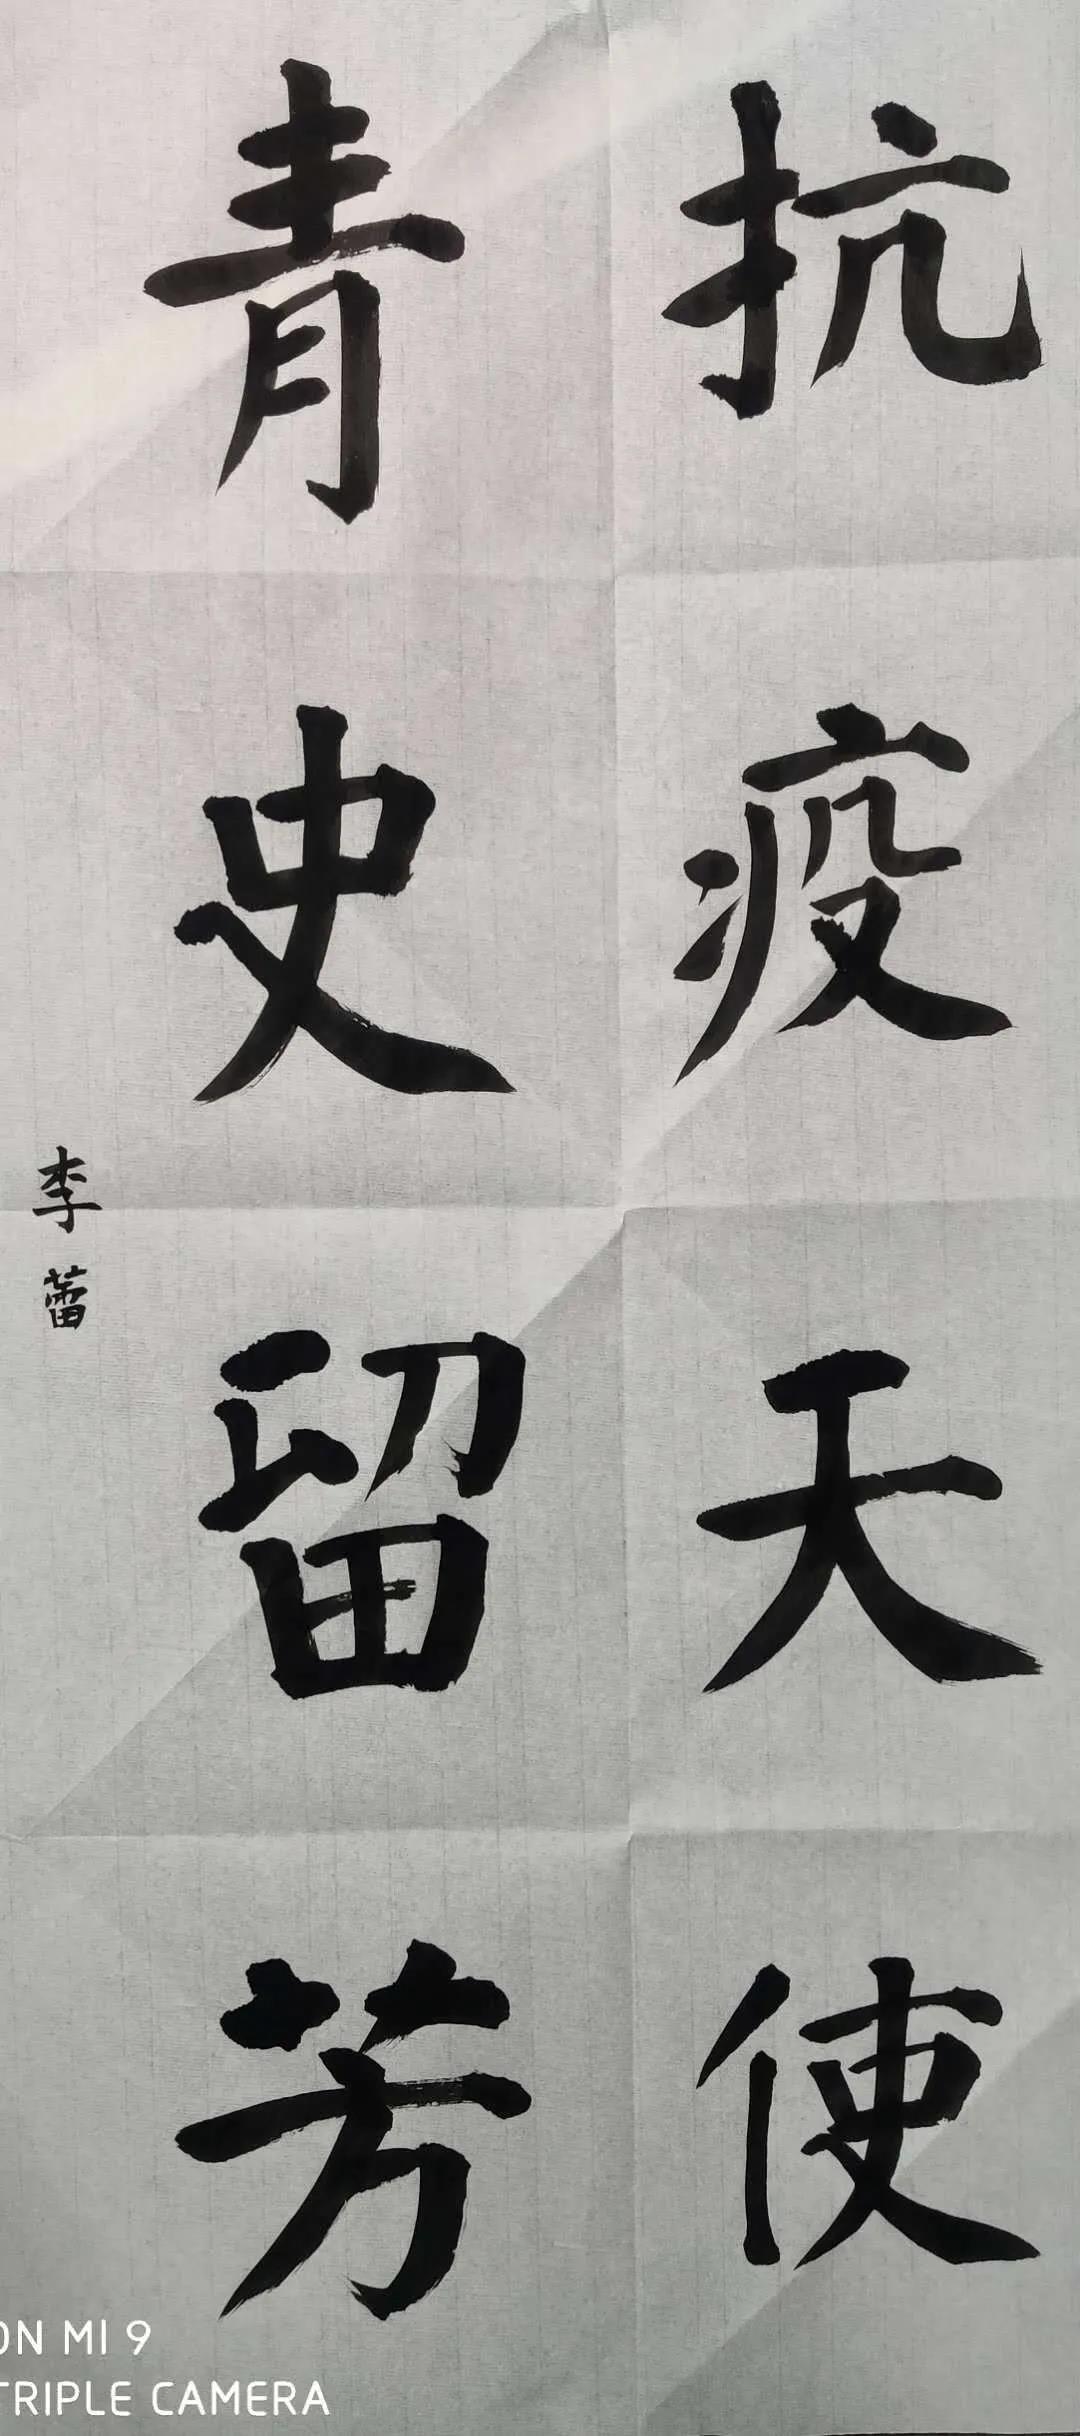 抗疫天使
青史留芳
李蕾
ON MI 9
TRIPLE CAMERA